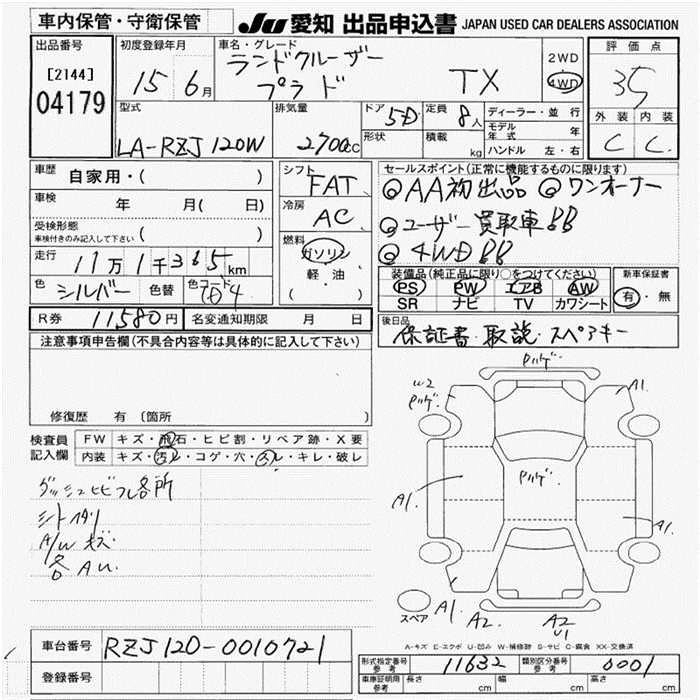 車内保管・守衛保管
JU 愛知 出品申込書 JAPAN USED CAR DEALERS ASSOCIATION
出品番号 [2144] 04179
初度登録年月 15 6月
車名・グレード ランドクルーザー プラド TX
2WD
4WD
評価点 35
外装 内装
C C
型式 LA-RZJ120W
排気量 2700cc
ドア 5D
形状
定員 8人
積載 kg
ディーラー・並行
モデル年式 年
ハンドル 左・右
車歴 自家用・( )
車検 年 月( 日)
受検形態 車検付きのみ記入して下さい ( )
走行 11万1千365km
色 シルバー 色替 色コード 1D4
R券 11580円 名変通知期限 月 日
シフト FAT
冷房 AC
燃料 ガソリン
軽・油
( )
セールスポイント(正常に機能するものに限ります)
◎AA初出品 ◎ワンオーナー
◎ユーザー買取車!!
◎4WD!!
装備品(純正品に限り○をつけてください)
PS PW エアB AW
SR ナビ TV カワシート
新車保証書
有・無
後日品 保証書・取説・スペアキー
注意事項申告欄(不具合内容等は具体的に記入して下さい)
修復歴 有〔箇所
検査員記入欄
FW キズ・飛石・ヒビ割・リペア跡・X要
内装 キズ・汚レ・コゲ・穴・スレ・キレ・破レ
ダッシュヒビワレ各所
シートスレ
A/W キズ
各AU.
車台番号 RZJ120-0010721
登録番号
ハゲ.
W2
ハゲ.
A1.
ハゲ.
A1.
A1.
A1.
A2.
A2
U1
スペア
A-キズ E-エクボ U-凹み W-補修跡 S-サビ C-腐食 XX-交換済
形式指定番号 参考 11632 類別区分番号 参考 0001
車庫証明用 参考 長さ cm 幅 cm 高さ cm